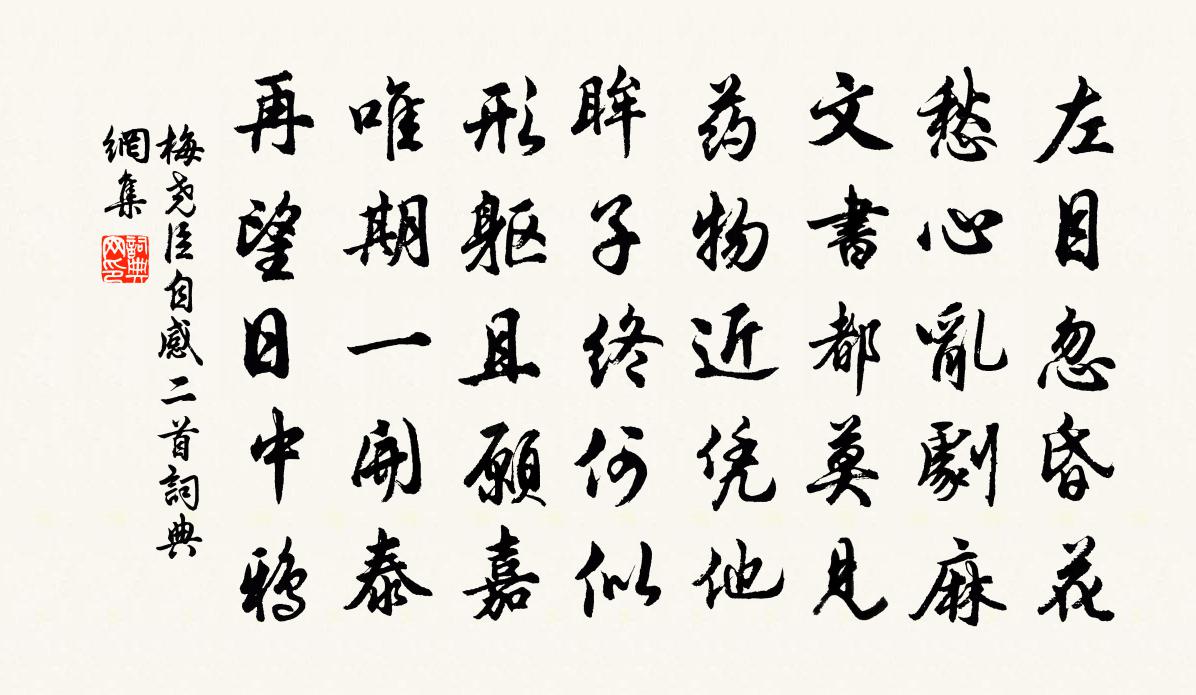 左目忽昏花
愁心亂劇麻
文書都莫見
药物近凭他
眸子终何似
形躯且願嘉
唯期一開泰
再望日中鴉
梅尧臣自感二首詞典
網集
詞典网印